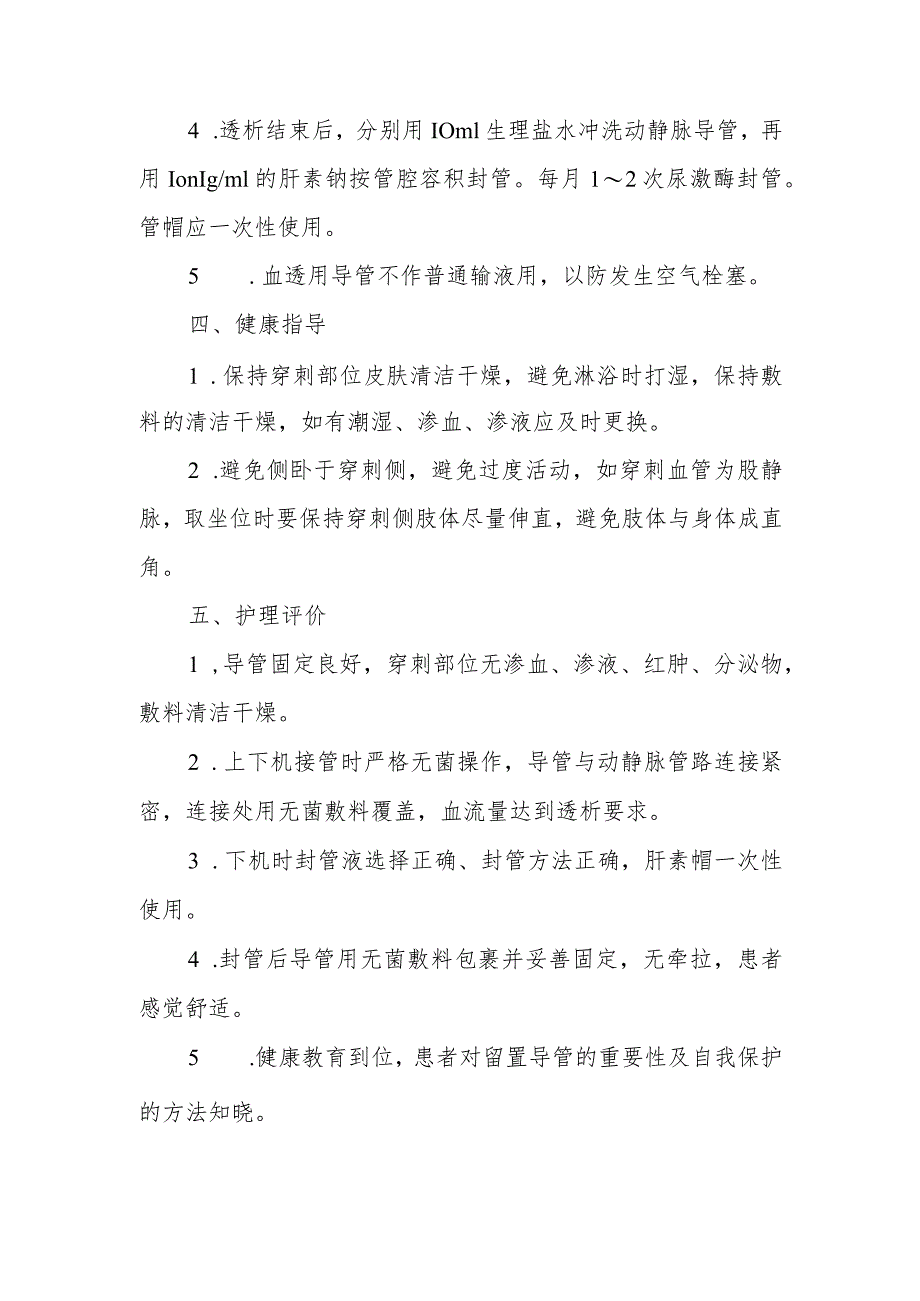 4 .透析结束后，分别用 IOml 生理盐水冲洗动静脉导管，再
用 IonIg/ml 的肝素钠按管腔容积封管。每月 1～2 次尿激酶封管。
管帽应一次性使用。
5 .血透用导管不作普通输液用，以防发生空气栓塞。
四、健康指导
1 .保持穿刺部位皮肤清洁干燥，避免淋浴时打湿，保持敷
料的清洁干燥，如有潮湿、渗血、渗液应及时更换。
2 .避免侧卧于穿刺侧，避免过度活动，如穿刺血管为股静
脉，取坐位时要保持穿刺侧肢体尽量伸直，避免肢体与身体成直
角。
五、护理评价
1 ,导管固定良好，穿刺部位无渗血、渗液、红肿、分泌物，
敷料清洁干燥。
2 .上下机接管时严格无菌操作，导管与动静脉管路连接紧
密，连接处用无菌敷料覆盖，血流量达到透析要求。
3 .下机时封管液选择正确、封管方法正确，肝素帽一次性
使用。
4 .封管后导管用无菌敷料包裹并妥善固定，无牵拉，患者
感觉舒适。
5 .健康教育到位，患者对留置导管的重要性及自我保护
的方法知晓。